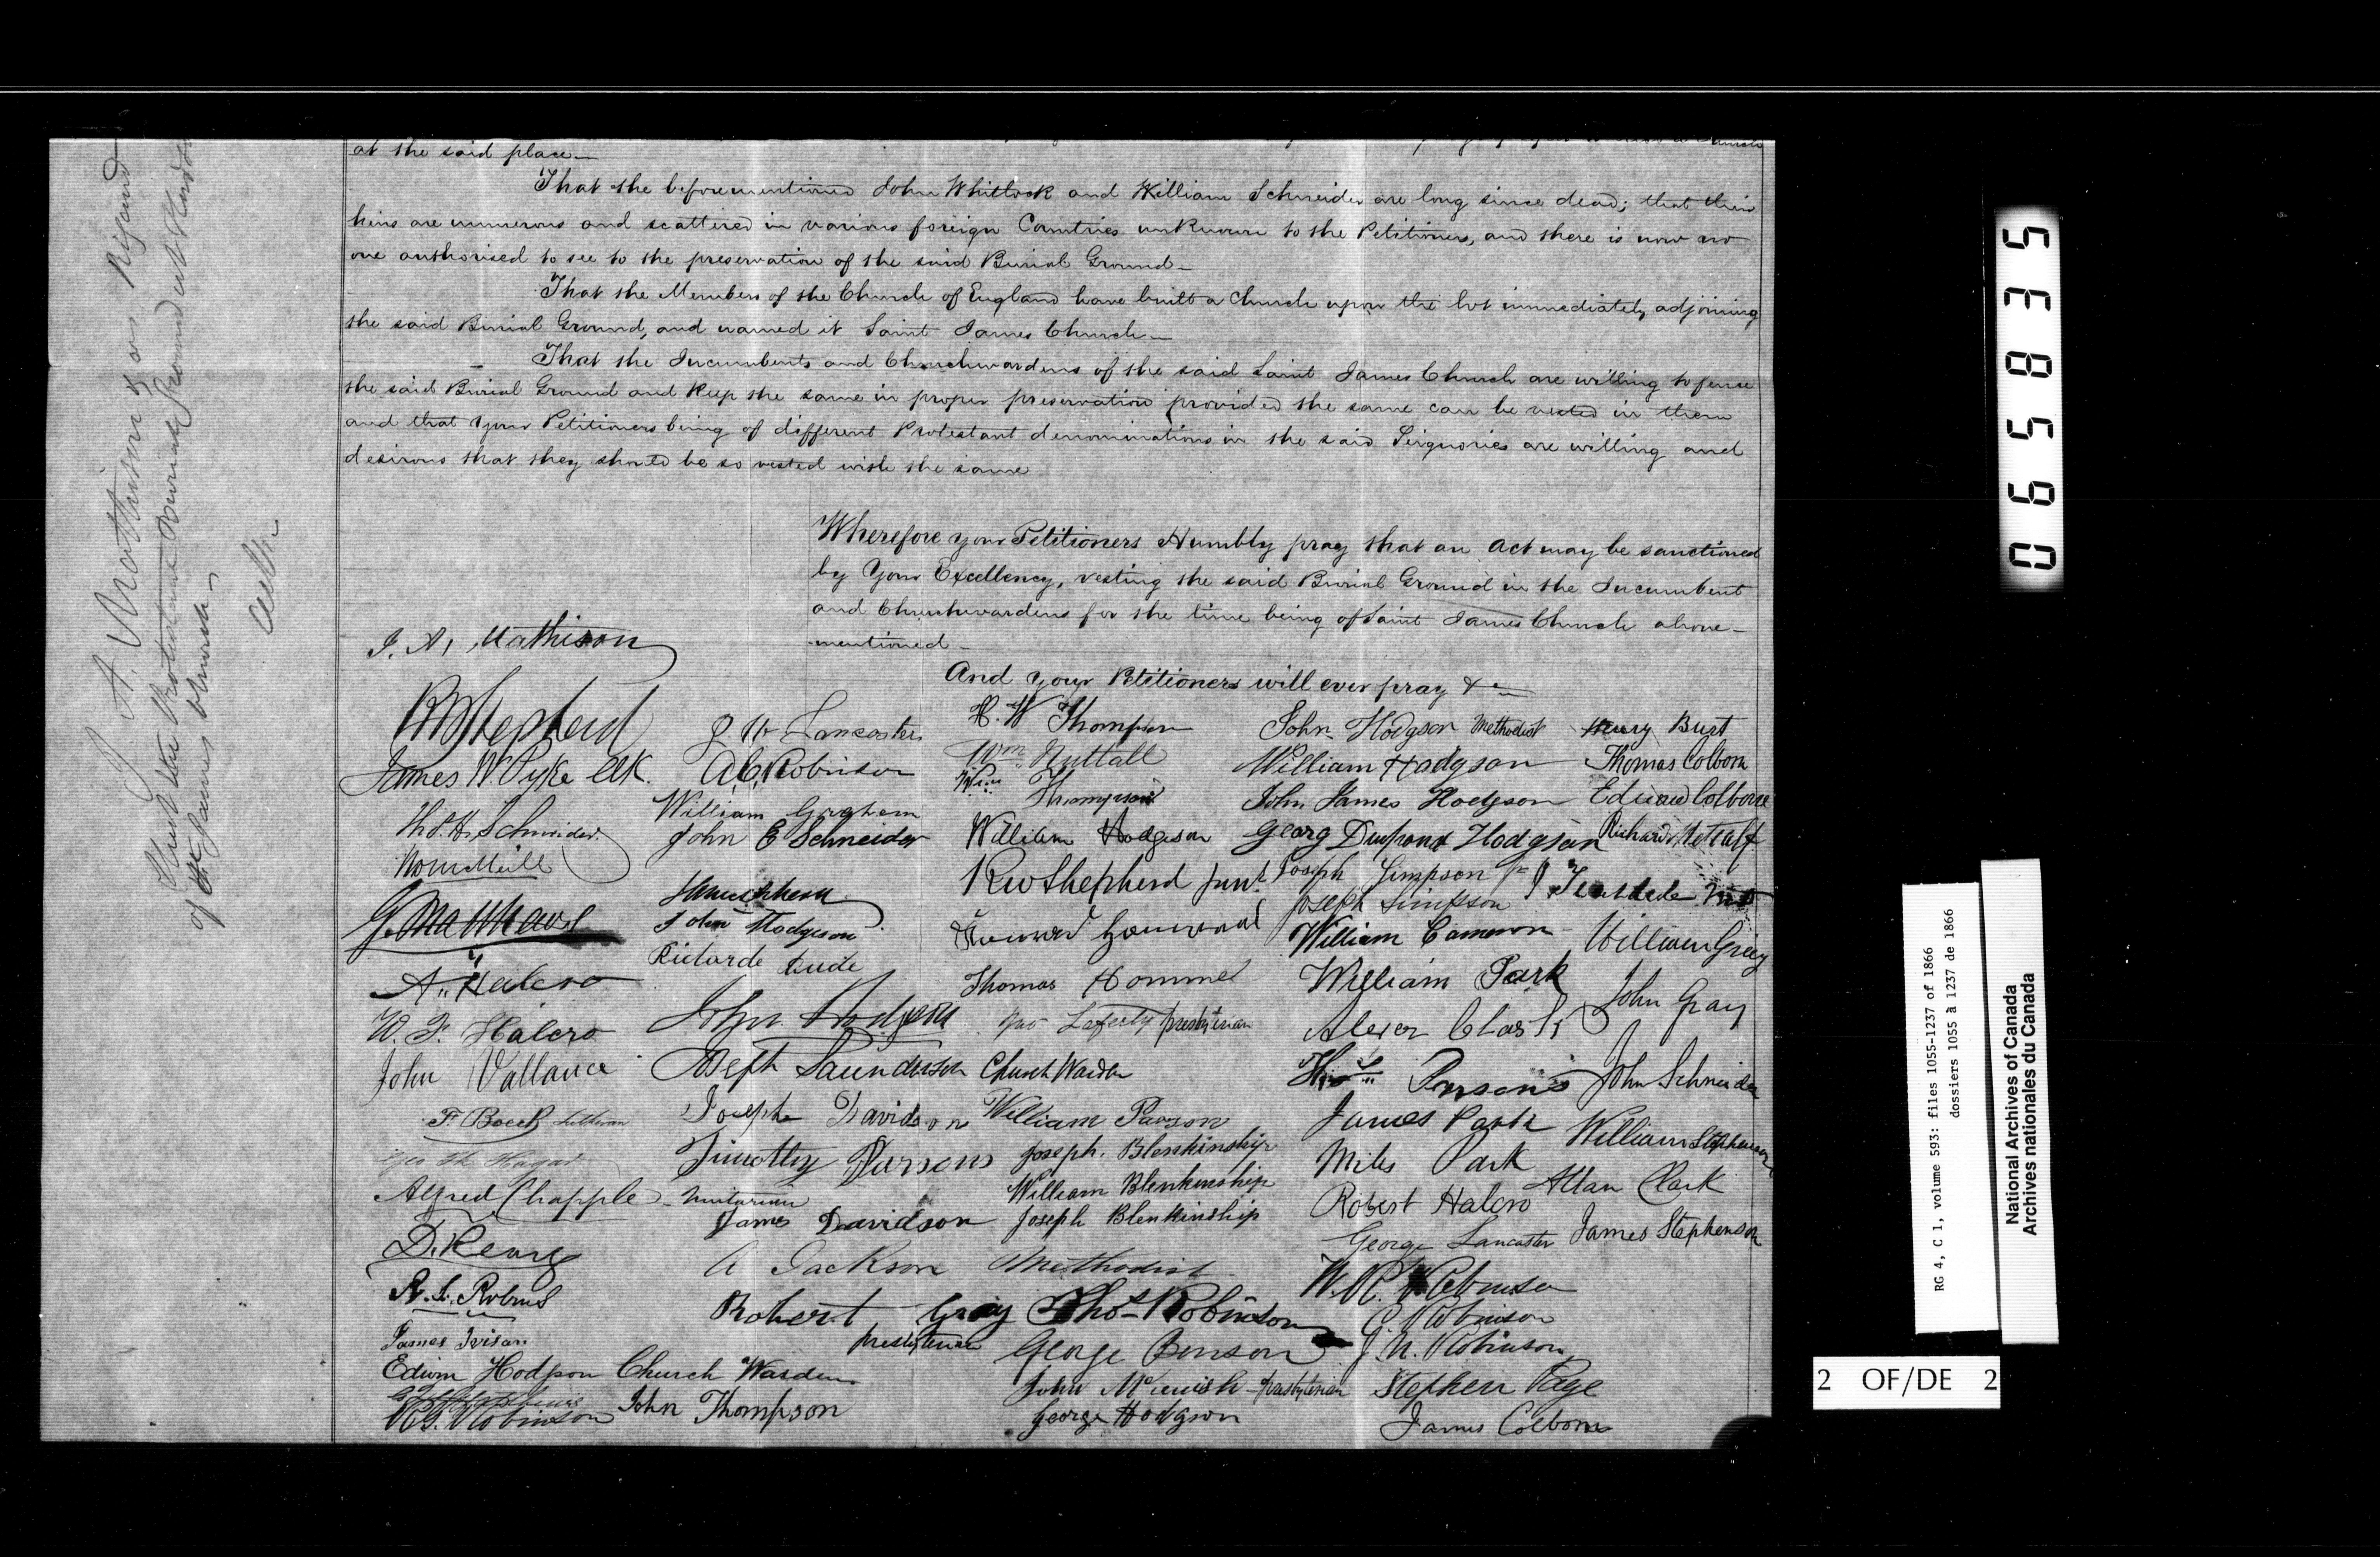 at the said place
That the beforementioned John Whitlock and William Schneider are long since dead; that their
heirs are numerous and scattered in various foreign Countries unknown to the Petitioners, and there is now no
one authorised to see to the preservation of the said Burial Ground
That the Members of the Church of England have built a Church upon the lot immediately adjoining
the said Burial Ground, and named it Saint James Church
That the Incumbents and Churchwardens of the said Saint James Church are willing to fence
the said Burial Ground and keep the same in proper preservation provided the same can be vested in them
and that your Petitioners being of different Protestant denominations in the said Seignories are willing and
desirous that they should be so vested with the same
Wherefore your Petitioners Humbly pray that an Act may be sanctioned
by Your Excellency, vesting the said Burial Ground in the Incumbent
and Churchwardens for the time being of Saint James Church above-
mentioned
And your Petitioners will ever pray &c
J. A. Mathison
RW Shepherd
James W Pyke Clk.
W. H. Schneider
G. Matthews
A. Halcro
W. F. Halcro
John Vallance
F. Boeck Lutheran
Alfred Chapple - Unitarian
A. L. Robins
James Ivison
Edwin Hodgson Church Warden
Robinson
J. W. Lancaster
A C Robinson
William Grisham
John E Schneider
John Hodgson
John Hodgson
Joseph Saunderson Church Warden
Joseph Davidson
Timothy Parsons
James Davidson
A Jackson Methodist
Robert Gray
presbyterian
John Thompson
H. W Thompson
Wm Nuttall
Wm Thompson
William Hodgson
RW Shepherd junr
Thomas Hommel
Jno Laferty presbyterian
William Parson
Joseph. Blenkinship
William Blenkinship
Joseph Blenkinship
Thos Robinson
George Benson
John McCuish - presbyterian
George Hodgson
John Hodgson Methodist
William Hodgson
John James Hodgson
Georg Hodgson
Joseph Simpson
Joseph Simpson
William Cameron
William Park
Parsons
James Park
Miles Park
Robert Halcro
George Lancaster
W. R. Robinson
C. Robinson
J. N. Robinson
Stephen Page
James Colborne
Henry Burt
Thomas Colborn
Edward Colborne
Richard Metcalf
William Grey
John Gray
John Schneider
William Stephenson
Allan Clark
James Stephenson
J. A. Mathison & ors Rigaud
of St James Church
065835
RG 4, C 1, volume 593: files 1055-1237 of 1866
dossiers 1055 à 1237 de 1866
National Archives of Canada
Archives nationales du Canada
2 OF/DE 2